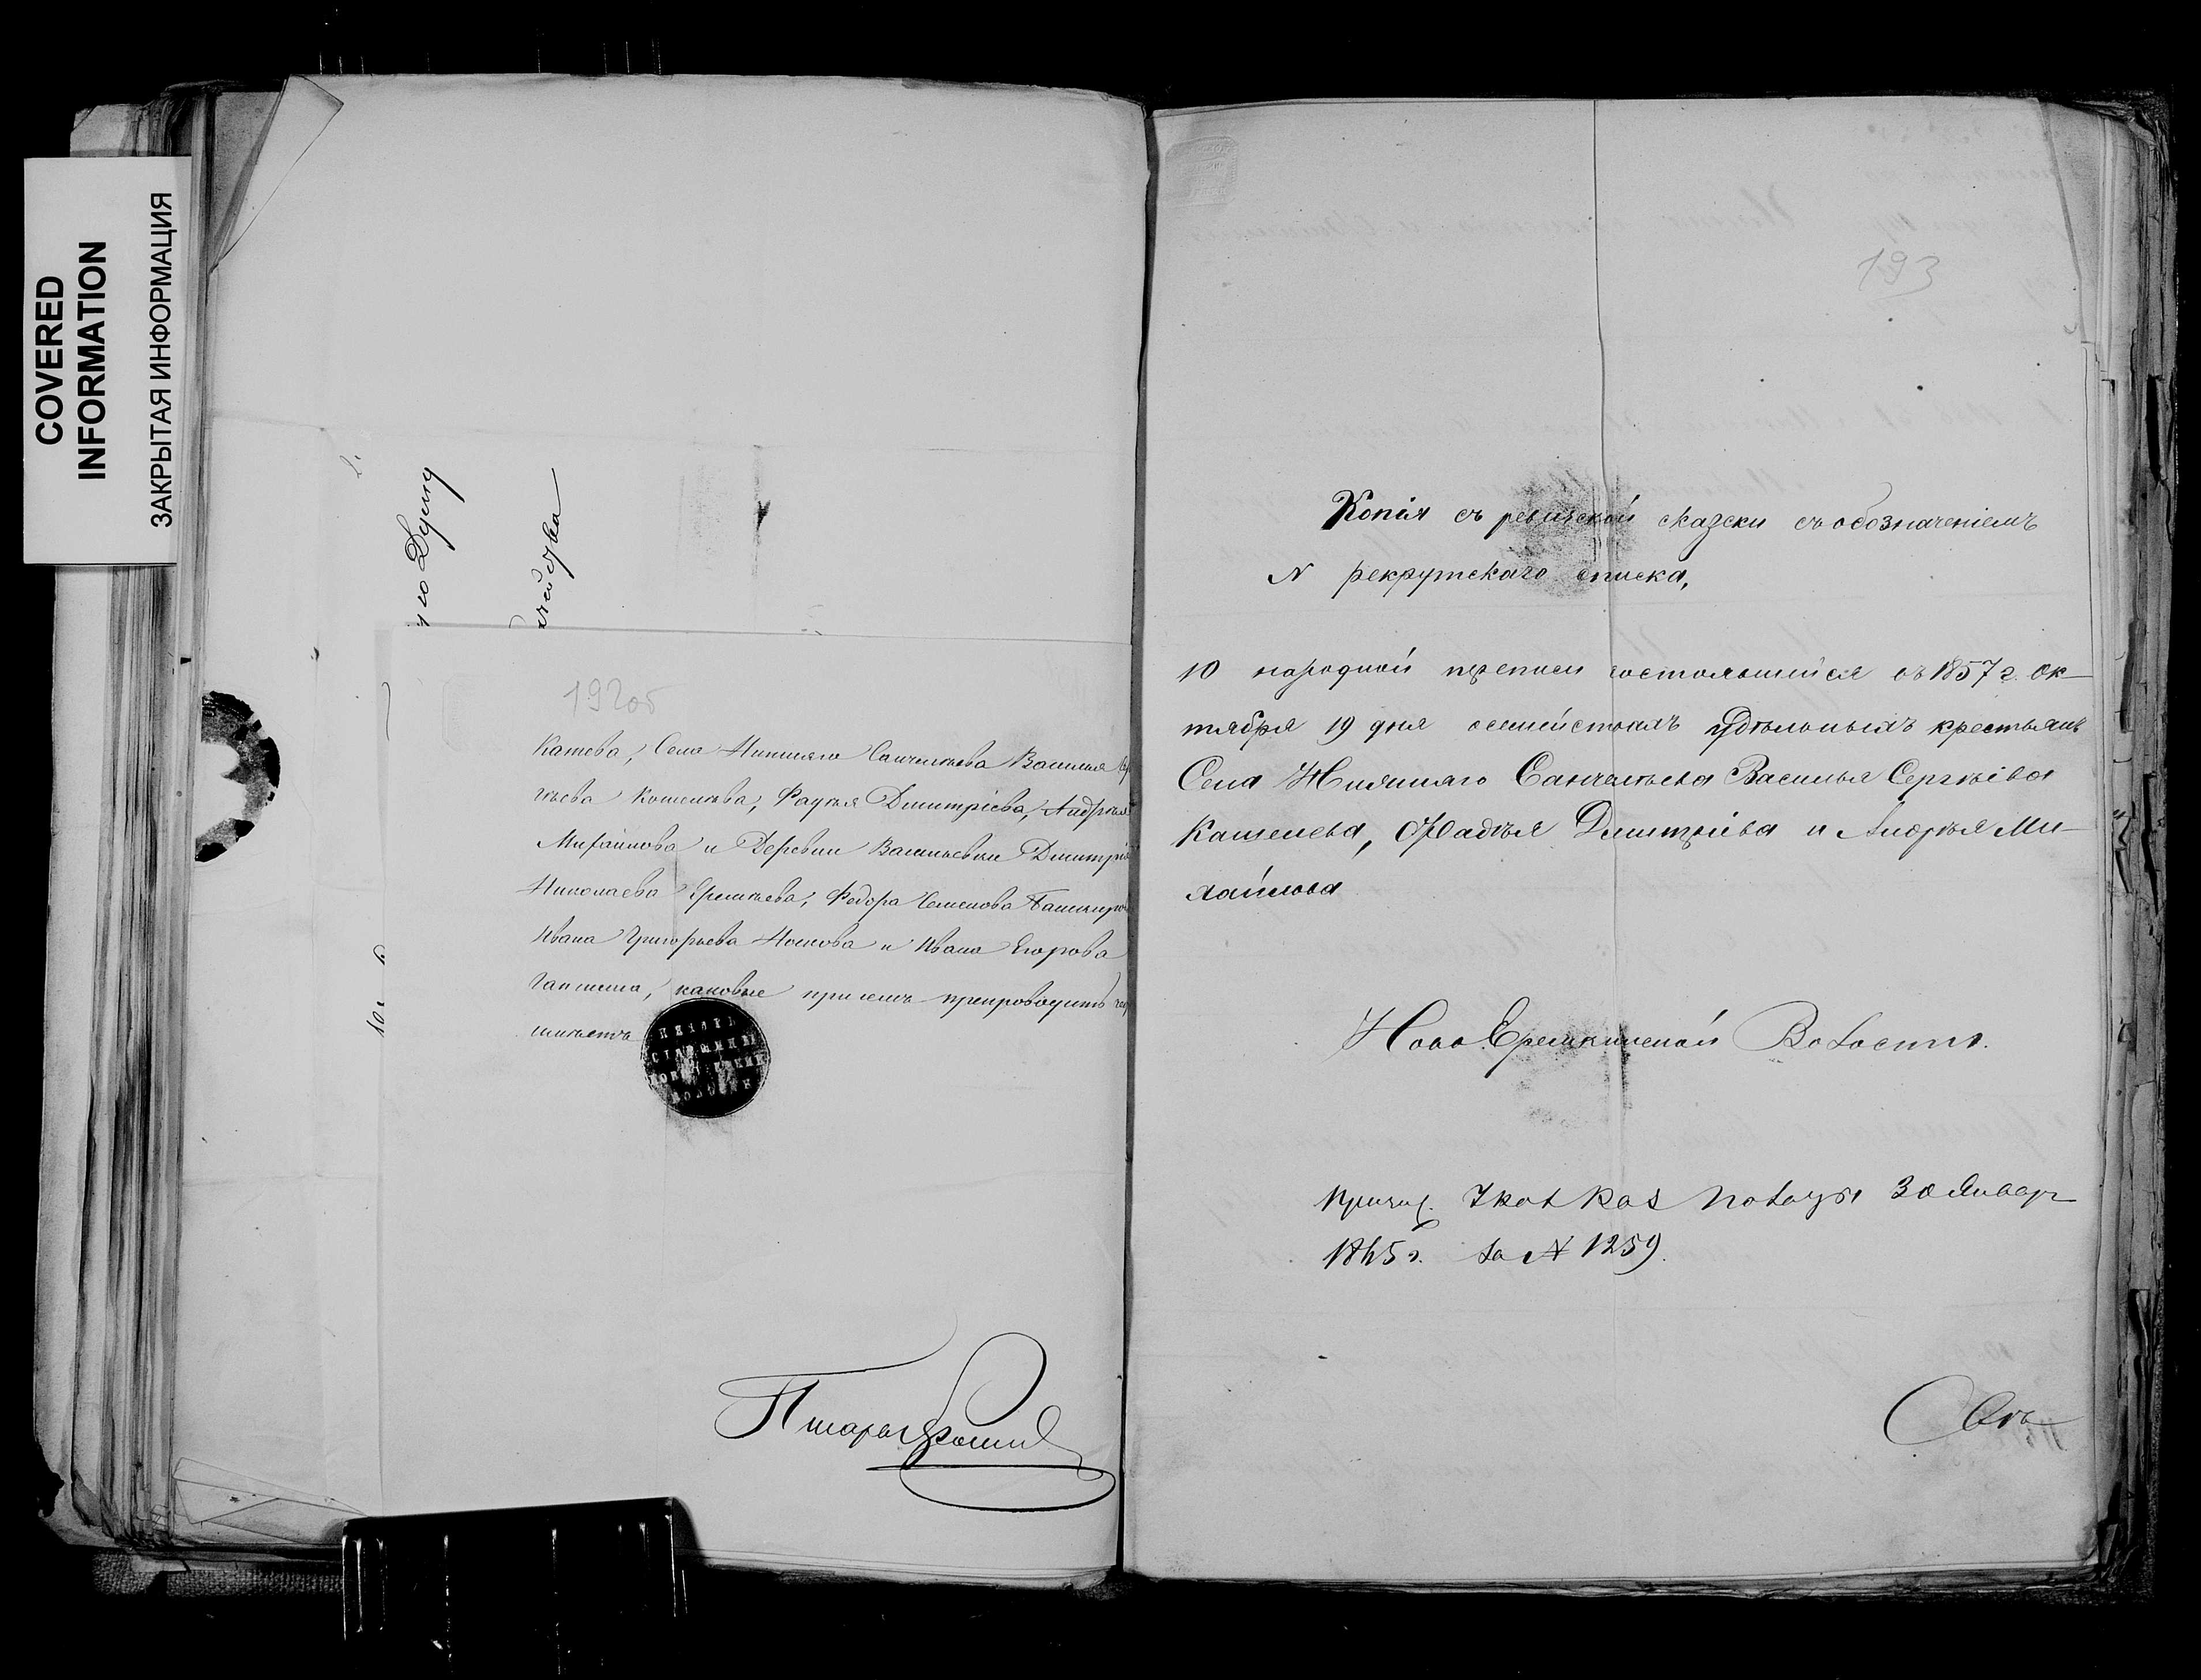 COVERED
INFORMATION
ЗАКРЫТАЯ ИНФОРМАЦИЯ
192об
Катева, Села Нижняго Санчелеева Василья Сер
гѣева Кошелева, Фадѣя Дмитріева, Андрѣя
Михайлова и Деревни Васильевки Дмитрія
Николаева Еремѣева, Федора Семенова Башкиро
Ивана Григорьева Носкова и Ивана Егорова
каковые при семъ препроводить
ПЕЧАТЬ
СТАРШИНЫ
193
Копія съ ревизской сказки съ обозначеніемъ
N рекрутскаго списка,
10 народной переписи состоявшейся въ 1857 г. Ок-
тября 19 дня семействамъ Удѣльныхъ крестьянъ
Села Нижняго Санчелеева Василья Сергѣева
Кашелева, Фадѣя Дмитріева и Андрѣя Ми-
хайлова
Ново Еремкинской Волости.
палаты 30 Январ
1865 г. за N 1259.